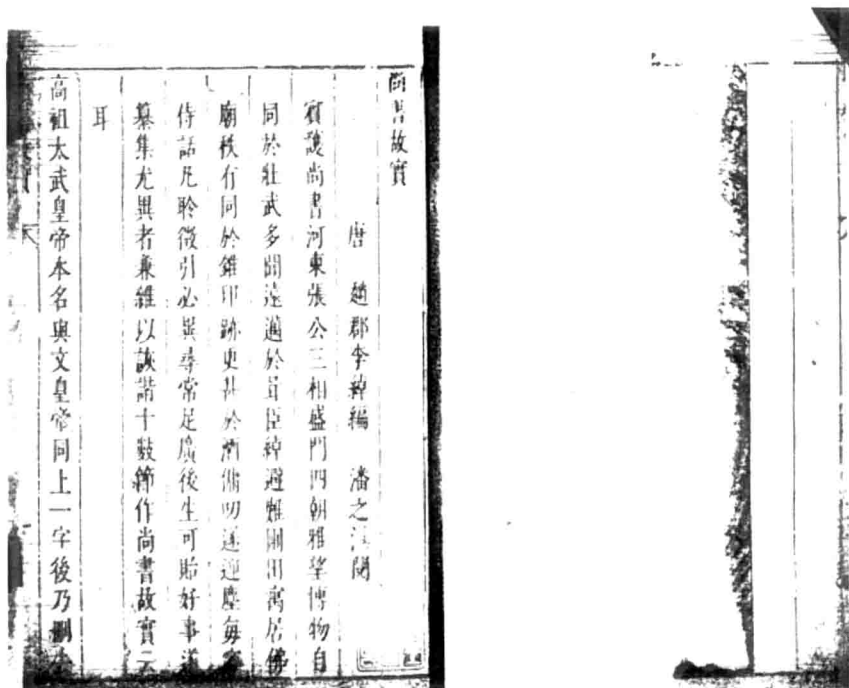 尚書故實
唐 趙郡李綽編 潘之淙閱
賓護尚書河東張公三相盛門四朝雅望博物自
同於壯武多聞遠邁於胥臣綽避難圃田寓居佛
廟秩有同於錐印跡更甚於酒傭叨遂迎塵每容
侍話凡聆徵引必異尋常足廣後生可貽好事遂
纂集尤異者兼雜以詼諧十數節作尚書故實云
耳
高祖太武皇帝本名與文皇帝同上一字後乃刪